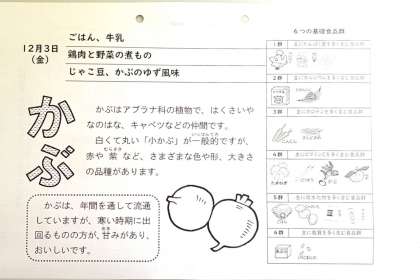 12月3日
(金)
ごはん、牛乳
鶏肉と野菜の煮もの
じゃこ豆、かぶのゆず風味
かぶ
かぶはアブラナ科の植物で、はくさいや
なのはな、キャベツなどの仲間です。
白くて丸い「小かぶ」が一般的ですが、
いっぱんてき
赤や紫など、さまざまな色や形、大きさ
むらさき
の品種があります。
かぶは、年間を通して流通
していますが、寒い時期に出
回るものの方が、甘みがあり、
おいしいです。
6つの基礎食品群
1群
2群
3群
4群
5群
6群